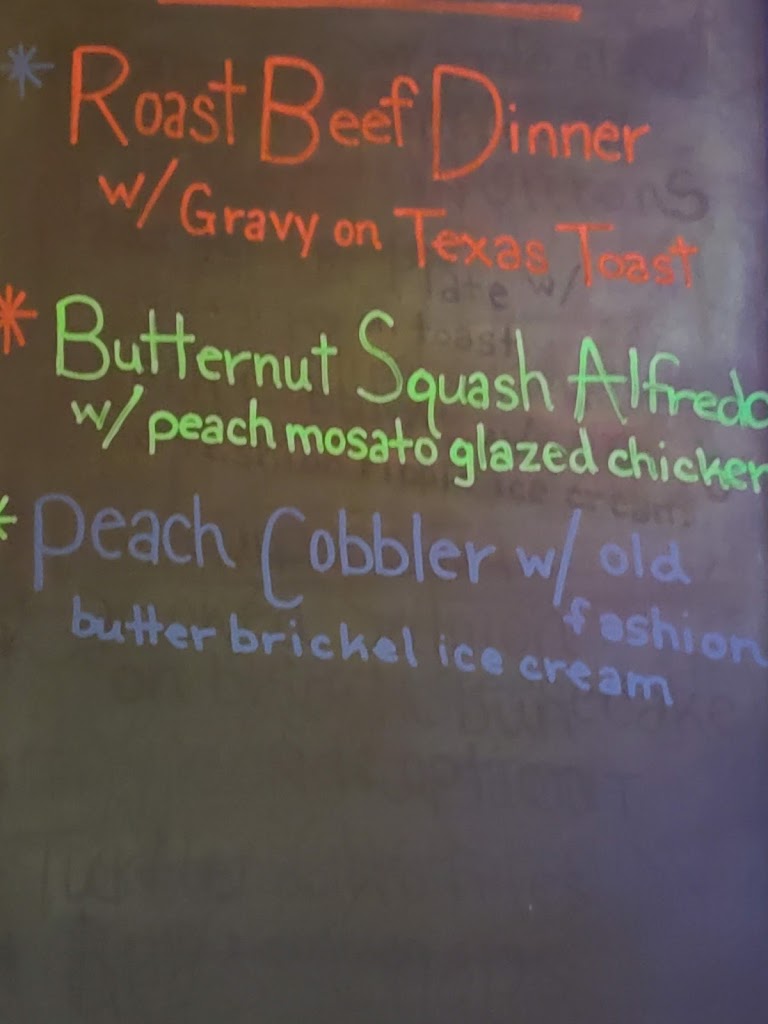 * Roast Beef Dinner
w/ Gravy on Texas Toast
* Butternut Squash Alfredo
w/ peach mosato glazed chicken
* Peach Cobbler w/ old
fashion
butter brickel ice cream